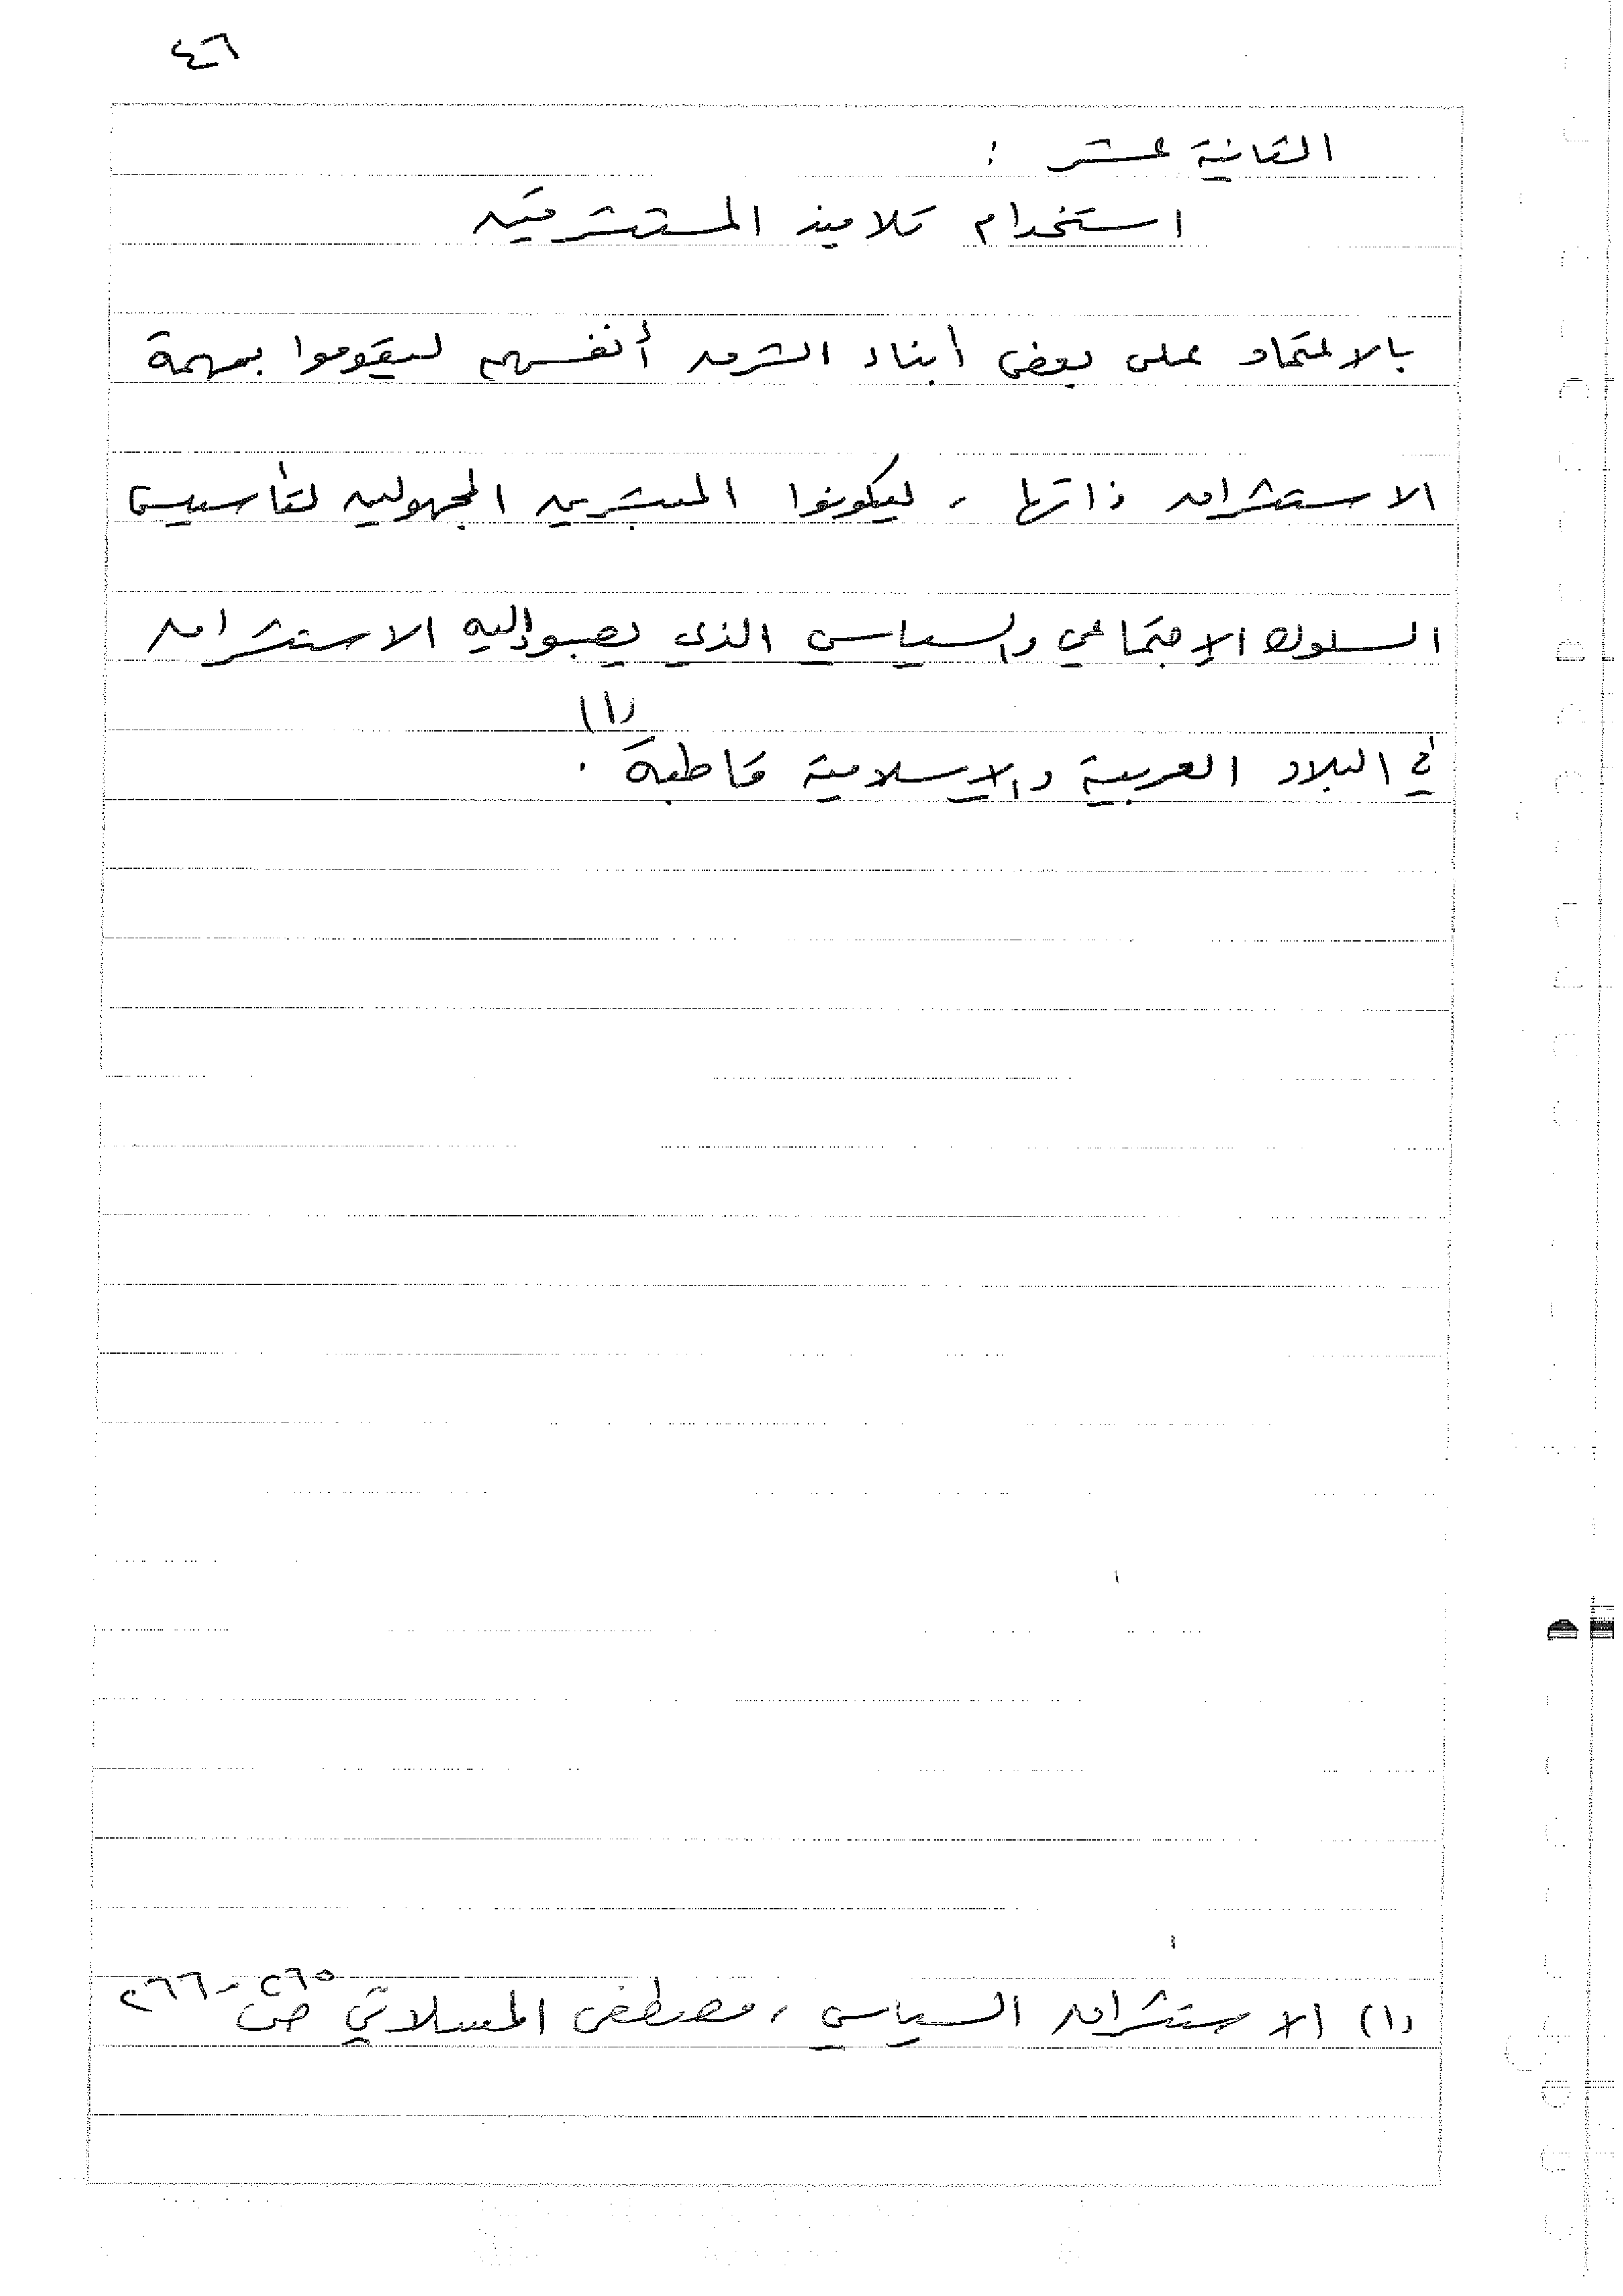 ٤٦
الثانية عشر :
استخدام تلاميذ المستشرقين
بالاعتماد على بعض أبناء الشرق أنفسهم ليقوموا بمهمة
الاستشراق ذاتها ، ليكونوا المبشرين المجهولين لتأسيس
السلوك الإجتماعي والسياسي الذي يصبو إليه الاستشراق
في البلاد العربية والإسلامية قاطبة (١) .
(١) الاستشراق السياسي ، مصطفى المسلاتي ص ٢٦٥ - ٢٦٦